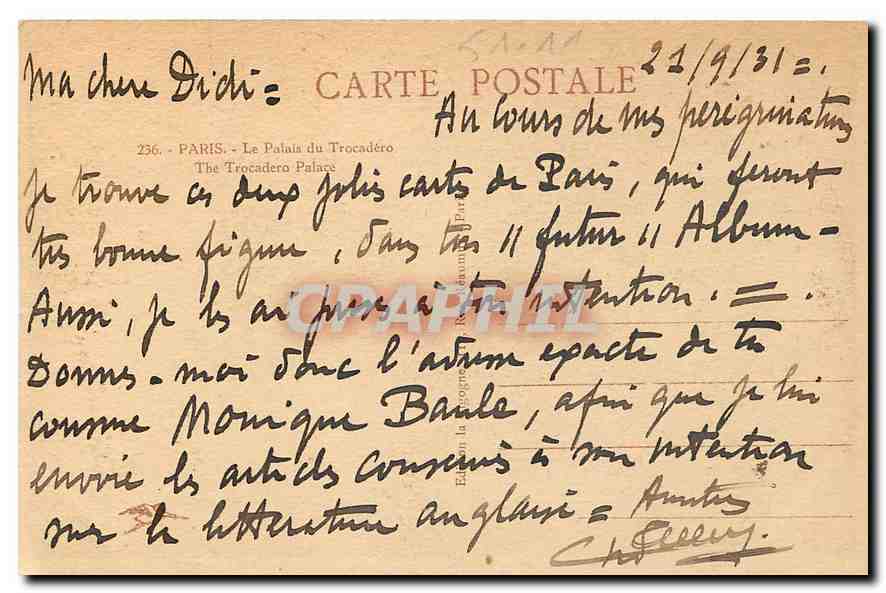 51.11
21/9/31 =.
Ma chere Didi =
CARTE POSTALE
Au Cours de mes peregrinations
236. - PARIS. - Le Palais du Trocadéro
The Trocadero Palace
je trouve ces deux jolies cartes de Paris, qui feront
très bonne figure, dans ton " futur " Album -
Aussi, je les ai prises à ton intention. = .
CPAPHIL
Donnes-moi donc l'adresse exacte de ta
cousine Monique Baule, afin que je lui
envoie les articles conservés à son intention
sur la litterature anglaise = Amitiés
Edition la Bourgogne, Paris